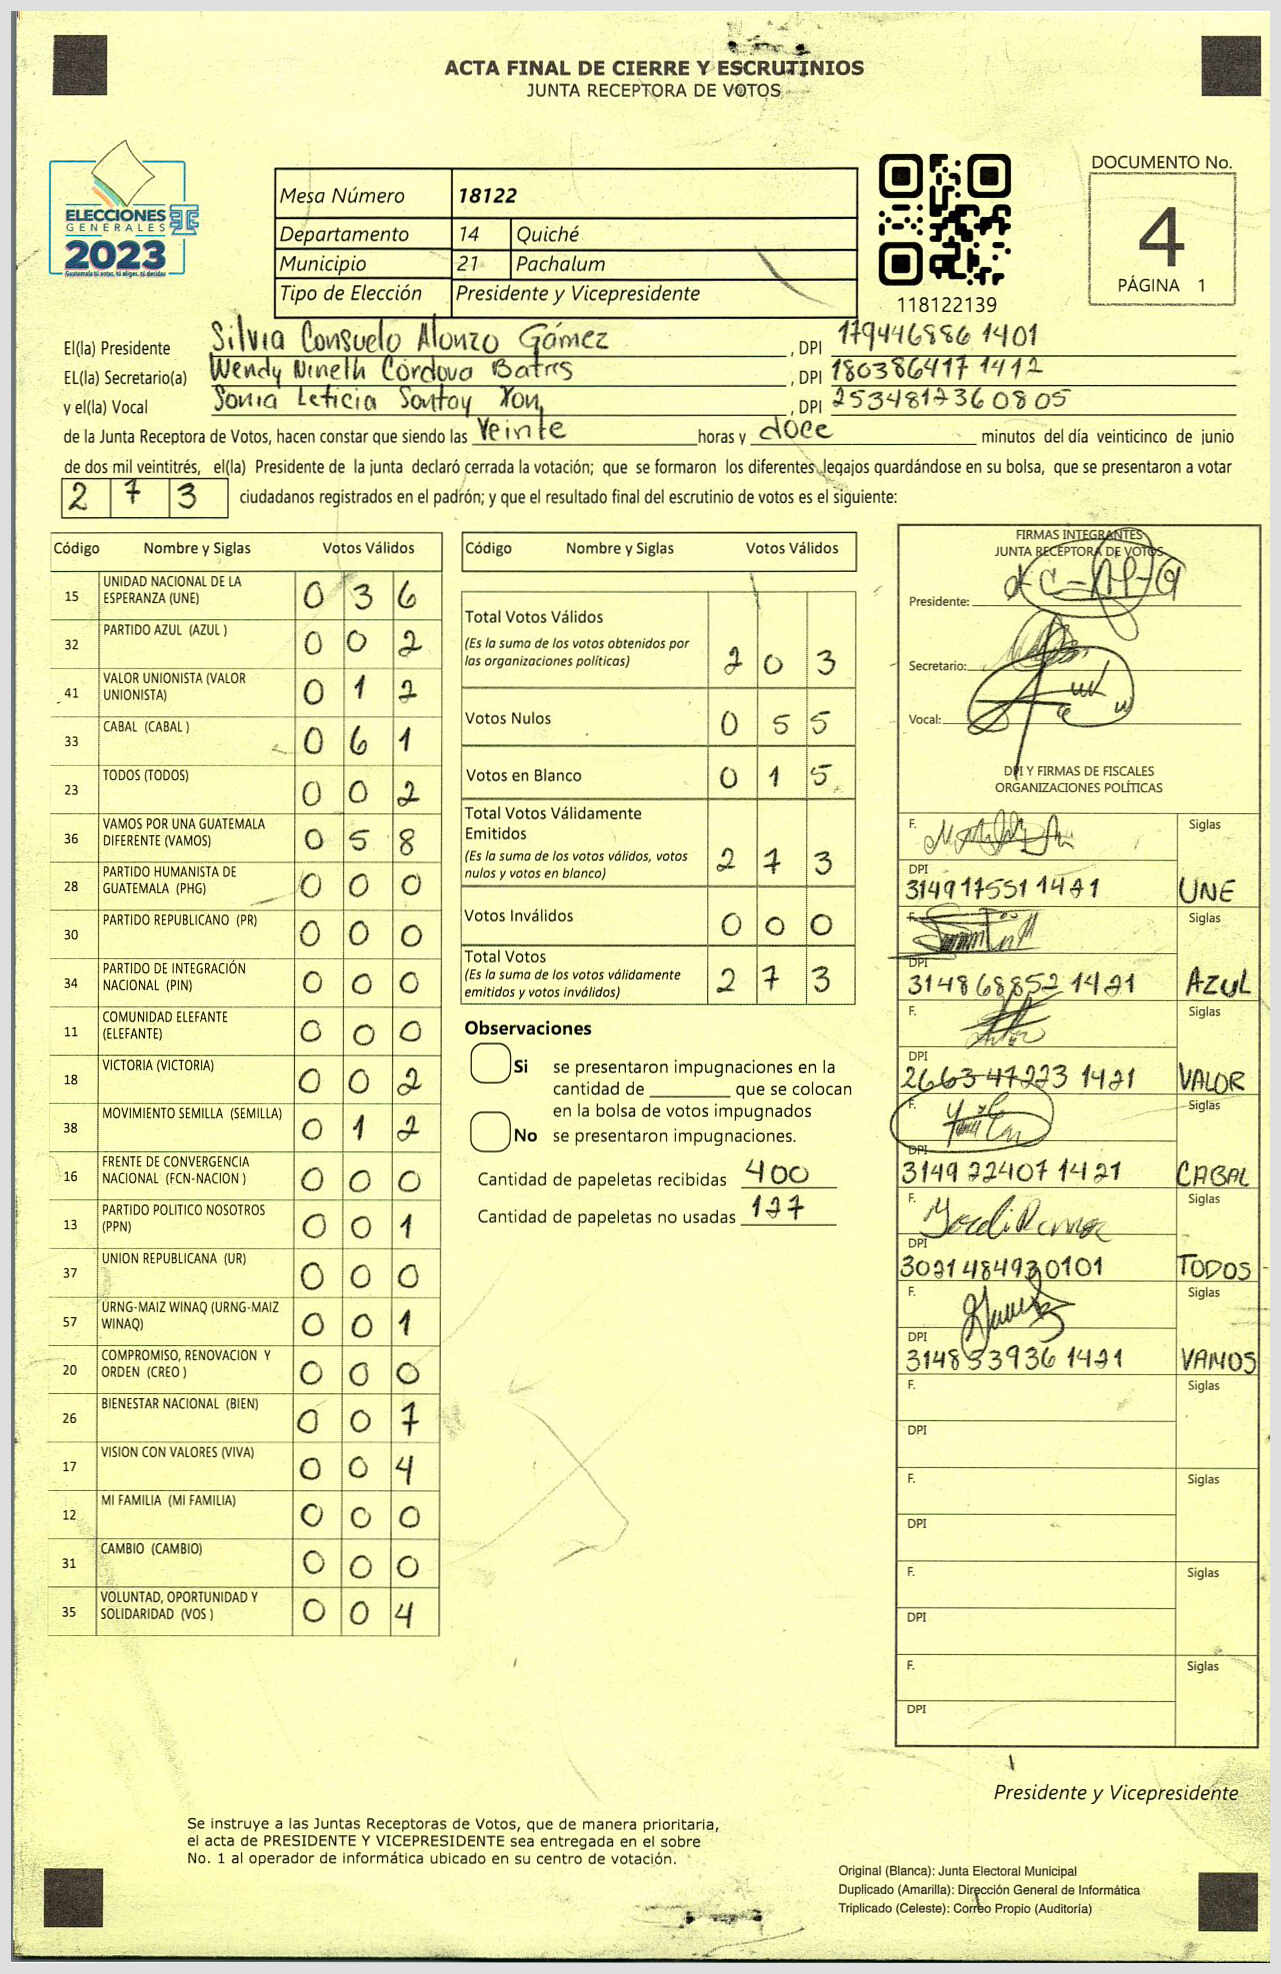 ACTA FINAL DE CIERRE Y ESCRUTINIOS
JUNTA RECEPTORA DE VOTOS
ELECCIONES
GENERALES
2023
Guatemala tú eres, tú eliges, tú decides
Mesa Número 18122
Departamento 14 Quiché
Municipio 21 Pachalum
Tipo de Elección Presidente y Vicepresidente
118122139
DOCUMENTO No.
4
PÁGINA 1
El(la) Presidente Silvia Consuelo Alonzo Gómez, DPI 179446886 1401
EL(la) Secretario(a) Wendy Nineth Córdova Batres, DPI 180386417 1412
y el(la) Vocal Sonia Leticia Santay Xon, DPI 2534812360805
de la Junta Receptora de Votos, hacen constar que siendo las veinte horas y doce minutos del día veinticinco de junio
de dos mil veintitrés, el(la) Presidente de la junta declaró cerrada la votación; que se formaron los diferentes legajos quardándose en su bolsa, que se presentaron a votar
273 ciudadanos registrados en el padrón; y que el resultado final del escrutinio de votos es el siguiente:
Código Nombre y Siglas Votos Válidos
15 UNIDAD NACIONAL DE LA
ESPERANZA (UNE) 036
32 PARTIDO AZUL (AZUL ) 002
41 VALOR UNIONISTA (VALOR
UNIONISTA) 012
33 CABAL (CABAL ) 061
23 TODOS (TODOS) 002
36 VAMOS POR UNA GUATEMALA
DIFERENTE (VAMOS) 058
28 PARTIDO HUMANISTA DE
GUATEMALA (PHG) 000
30 PARTIDO REPUBLICANO (PR) 000
34 PARTIDO DE INTEGRACIÓN
NACIONAL (PIN) 000
11 COMUNIDAD ELEFANTE
(ELEFANTE) 000
18 VICTORIA (VICTORIA) 002
38 MOVIMIENTO SEMILLA (SEMILLA) 012
16 FRENTE DE CONVERGENCIA
NACIONAL (FCN-NACION ) 000
13 PARTIDO POLITICO NOSOTROS
(PPN) 001
37 UNION REPUBLICANA (UR) 000
57 URNG-MAIZ WINAQ (URNG-MAIZ
WINAQ) 001
20 COMPROMISO, RENOVACION Y
ORDEN (CREO ) 000
26 BIENESTAR NACIONAL (BIEN) 007
17 VISION CON VALORES (VIVA) 004
12 MI FAMILIA (MI FAMILIA) 000
31 CAMBIO (CAMBIO) 000
35 VOLUNTAD, OPORTUNIDAD Y
SOLIDARIDAD (VOS ) 004
Código Nombre y Siglas Votos Válidos
Total Votos Válidos
(Es la suma de los votos obtenidos por
las organizaciones políticas) 203
Votos Nulos 055
Votos en Blanco 015
Total Votos Válidamente
Emitidos
(Es la suma de los votos válidos, votos
nulos y votos en blanco) 273
Votos Inválidos 000
Total Votos
(Es la suma de los votos válidamente
emitidos y votos inválidos) 273
Observaciones
Si se presentaron impugnaciones en la
cantidad de ________ que se colocan
en la bolsa de votos impugnados
No se presentaron impugnaciones.
Cantidad de papeletas recibidas 400
Cantidad de papeletas no usadas 127
FIRMAS INTEGRANTES
JUNTA RECEPTORA DE VOTOS
Presidente:
Secretario:
Vocal:
DPI Y FIRMAS DE FISCALES
ORGANIZACIONES POLÍTICAS
F. Siglas
DPI
314917551 1421 UNE
F. Siglas
DPI
314868852 1421 AZUL
F. Siglas
DPI
266347223 1421 VALOR
F. Siglas
DPI
314922407 1421 CABAL
F. Siglas
DPI
3021484930101 TODOS
F. Siglas
DPI
314853936 1421 VAMOS
F. Siglas
DPI
F. Siglas
DPI
F. Siglas
DPI
F. Siglas
DPI
Presidente y Vicepresidente
Se instruye a las Juntas Receptoras de Votos, que de manera prioritaria,
el acta de PRESIDENTE Y VICEPRESIDENTE sea entregada en el sobre
No. 1 al operador de informática ubicado en su centro de votación.
Original (Blanca): Junta Electoral Municipal
Duplicado (Amarilla): Dirección General de Informática
Triplicado (Celeste): Correo Propio (Auditoría)